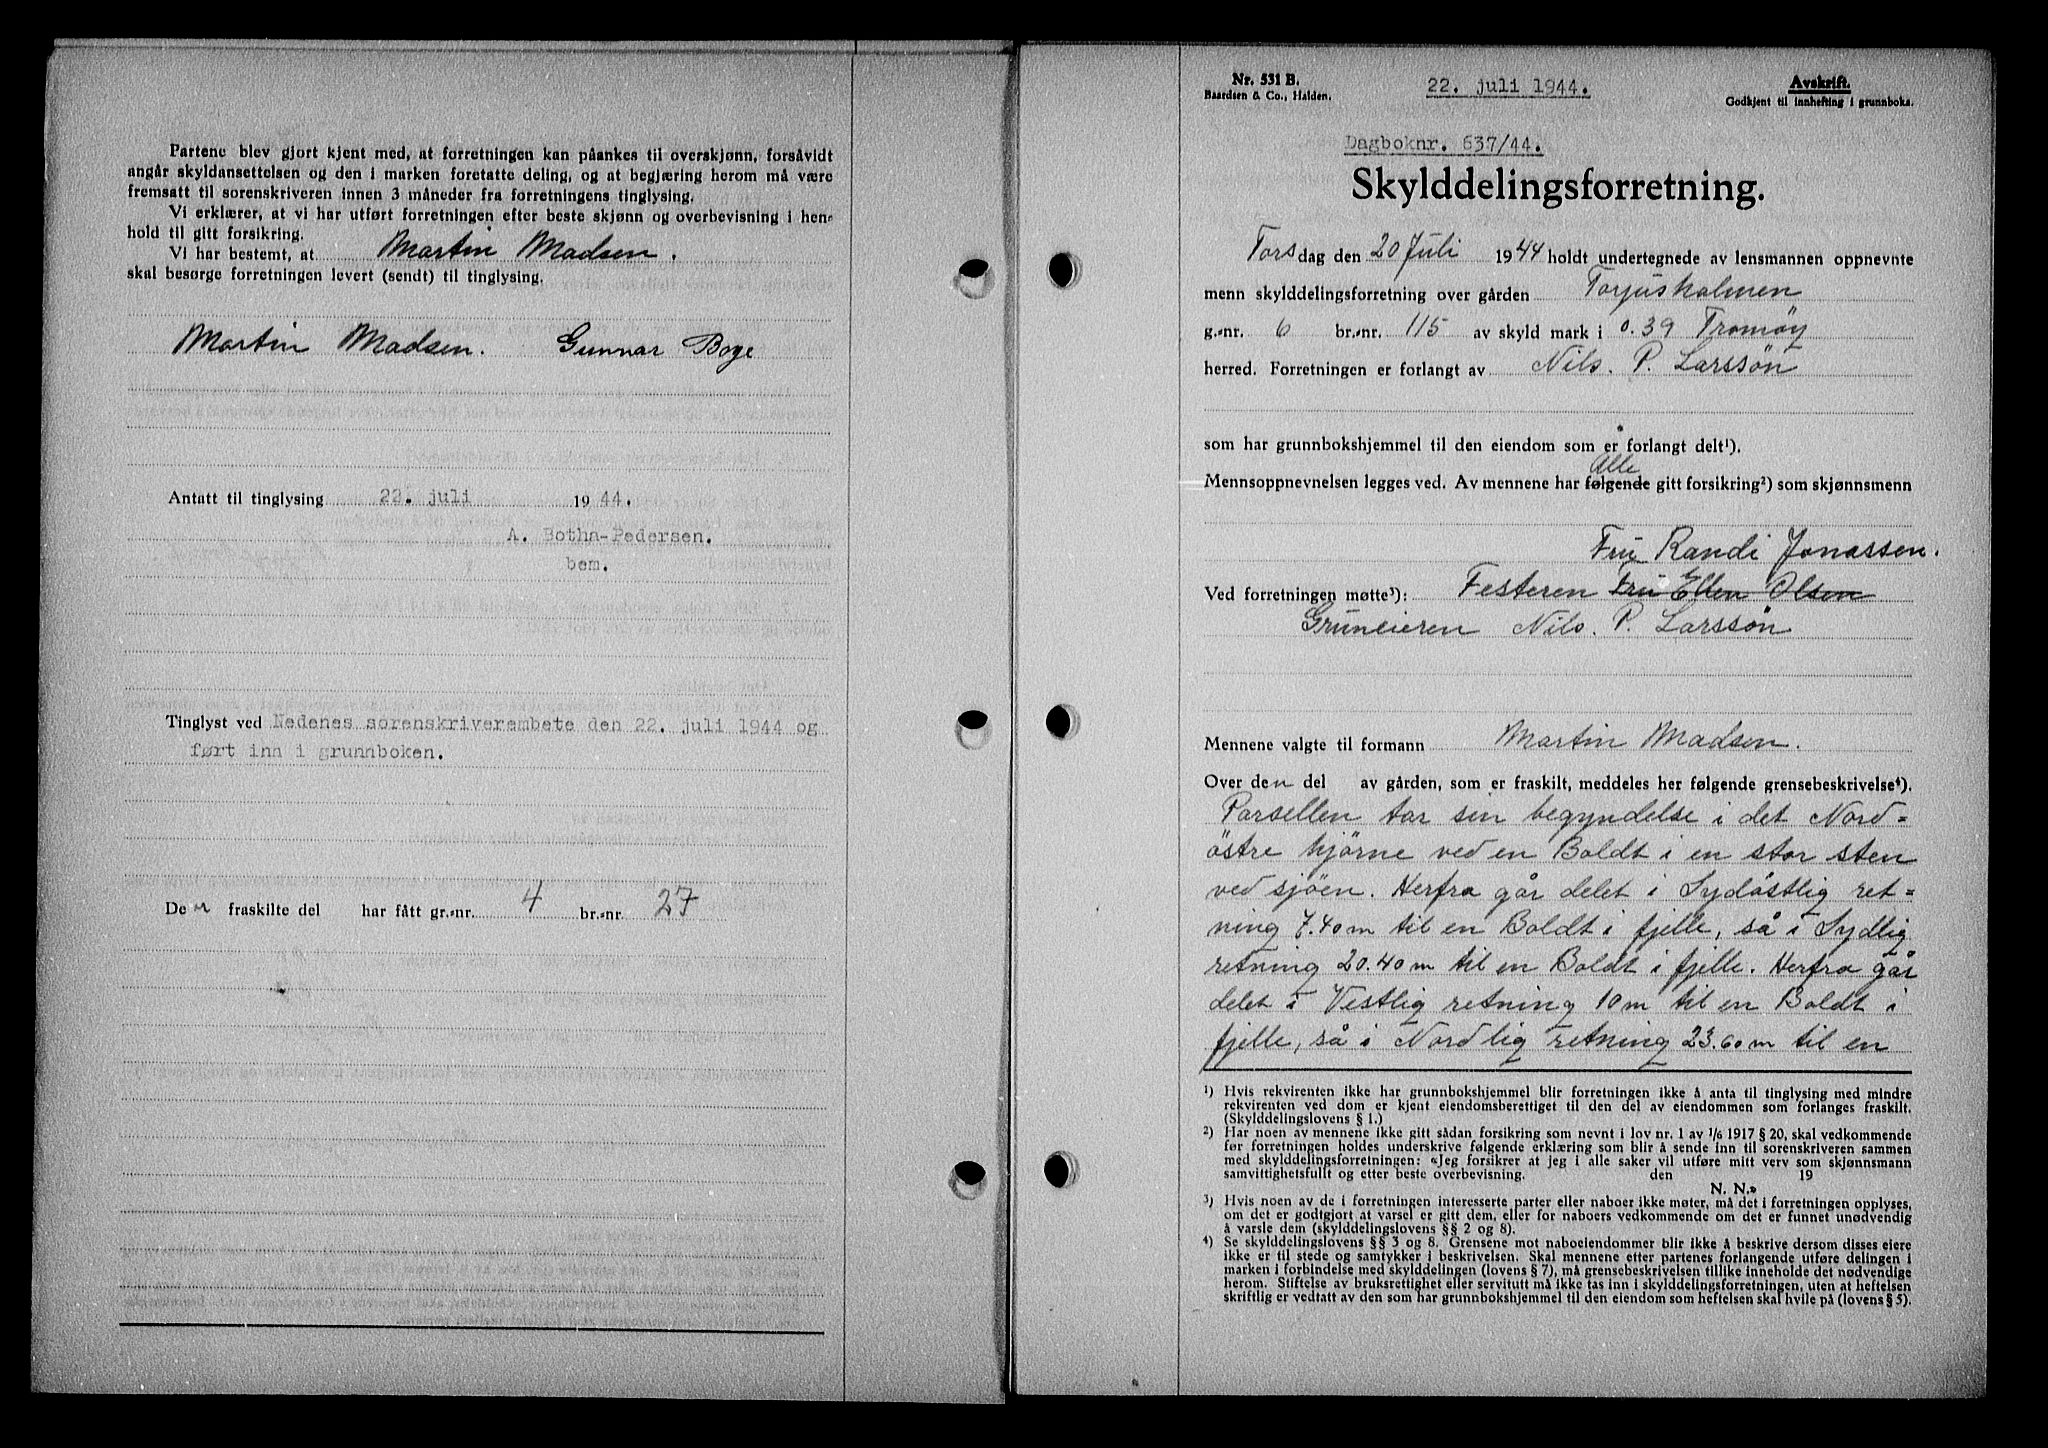 Partene blev gjort kjent med, at forretningen kan påankes til overskjønn, forsåvidt
angår skyldansettelsen og den i marken foretatte deling, og at begjæring herom må være
fremsatt til sorenskriveren innen 3 måneder fra forretningens tinglysing.
Vi erklærer, at vi har utført forretningen efter beste skjønn og overbevisning i hen-
hold til gitt forsikring.
Vi har bestemt, at Martin Madsen.
skal besørge forretningen levert (sendt) til tinglysing.
Martin Madsen. Gunnar Boye
Antatt til tinglysing 22. juli 1944.
A. Botha-Pedersen.
bem.
Tinglyst ved Nedenes sorenskriverembete den 22. juli 1944 og
ført inn i grunnboken.
Den fraskilte del har fått gr.-nr. 4 br.-nr. 27
Nr. 531 B.
Baardsen & Co., Halden.
22. juli 1944.
Avskrift.
Godkjent til innhefting i grunnboka.
Dagboknr. 637/44.
Skylddelingsforretning.
Torsdag den 20 Juli 1944 holdt undertegnede av lensmannen oppnevnte
menn skylddelingsforretning over gården Torjusholmen
g.-nr. 6 br.-nr. 115 av skyld mark i 0.39 Tromøy
herred. Forretningen er forlangt av Nils. P. Larssøn
som har grunnbokshjemmel til den eiendom som er forlangt delt¹).
Alle
Mennsoppnevnelsen legges ved. Av mennene har følgende gitt forsikring²) som skjønnsmenn
Fru Randi Jonassen.
Ved forretningen møtte³): Festeren Fru Ellen Olsen
Gruneieren Nils. P. Larssøn
Mennene valgte til formann Martin Madsen.
Over den del av gården, som er fraskilt, meddeles her følgende grensebeskrivelse⁴).
Parsellen tar sin begyndelse i det Nord=
östre hjörne ved en Boldt i en stor sten
ved sjöen. Herfra går delet i Sydöstlig ret=
ning 7.40 m til en Boldt i fjelle, så i Sydlig
retning 20.40 m til en Boldt i fjelle. Herfra går
delet i Vestlig retning 10 m til en Boldt i
fjelle, så i Nordlig retning 23.60 m til en
¹) Hvis rekvirenten ikke har grunnbokshjemmel blir forretningen ikke å anta til tinglysing med mindre
rekvirenten ved dom er kjent eiendomsberettiget til den del av eiendommen som forlanges fraskilt.
(Skylddelingslovens § 1.)
²) Har noen av mennene ikke gitt sådan forsikring som nevnt i lov nr. 1 av 1/6 1917 § 20, skal vedkommende
før forretningen holdes underskrive følgende erklæring som blir å sende inn til sorenskriveren sammen
med skylddelingsforretningen: «Jeg forsikrer at jeg i alle saker vil utføre mitt verv som skjønnsmann
samvittighetsfullt og etter beste overbevisning. den 19
N. N.»
³) Hvis noen av de i forretningen interesserte parter eller naboer ikke møter, må det i forretningen opplyses,
om det er godtgjort at varsel er gitt dem, eller for naboers vedkommende om det er funnet unødvendig
å varsle dem (skylddelingslovens §§ 2 og 8).
⁴) Se skylddelingslovens §§ 3 og 8. Grensene mot naboeiendommer blir ikke å beskrive dersom disses eiere
ikke er til stede og samtykker i beskrivelsen. Skal mennene etter partenes forlangende utføre delingen i
marken i forbindelse med skylddelingen (lovens § 7), må grensebeskrivelsen tillike inneholde det nødvendige
herom. Stiftelse av bruksrettighet eller servitutt må ikke tas inn i skylddelingsforretningen, uten at heftelsen
skriftlig er vedtatt av den som har grunnbokshjemmel til den eiendom som heftelsen skal hvile på (lovens § 5).